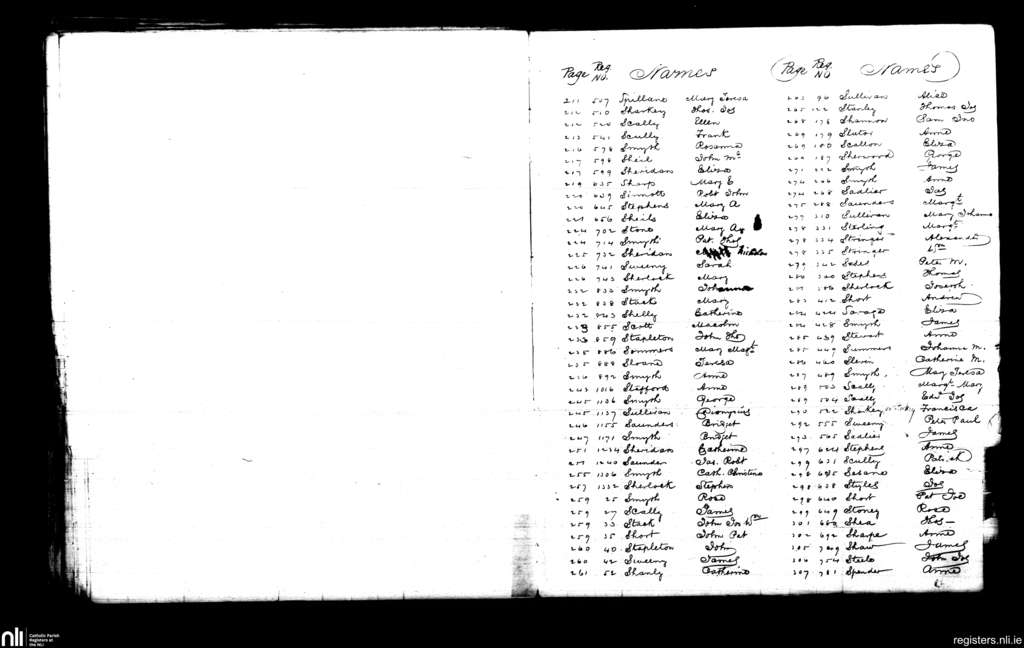 Page Reg No. Names
211 507 Spillane Mary Teresa
212 510 Sharkey Thos. Jos
212 520 Scally Ellen
213 541 Scully Frank
216 578 Smyth Rosanna
217 598 Sheil John Mc
217 599 Sheridan Eliza
219 635 Sharp Mary E
220 639 Sinnott Robt John
220 645 Stephens Mary A
221 656 Sheils Eliza
224 702 Stone Mary A
224 714 Smyth Pat. Thos
225 732 Sheridan Nicholas
226 741 Sweeny Sarah
226 743 Sherlock Mary
232 832 Smyth Johanna
232 838 Stack Mary
232 843 Shelly Catherine
233 855 Scott Malcolm
233 859 Stapleton John Thos
235 886 Sommers Mary Margt
235 888 Sloane Teresa
236 892 Smyth Anne
243 1016 Stafford Anne
245 1136 Smyth George
245 1137 Sullivan
246 1155 Saunders Bridget
247 1171 Smyth Bridget
251 1234 Sheridan Catherine
251 1240 Saunder Jas. Robt
255 1306 Smyth Cath. Christina
257 1332 Sherlock Stephen
259 25 Smyth Rose
259 27 Scally James
259 33 Stack John Jos Wm
259 35 Short John Pat
260 40 Stapleton John
260 42 Sweeny James
261 52 Shanly Catherine
Page Reg No Names
263 96 Sullivan Alice
265 122 Stanley Thomas Jos
268 178 Shannon Sam Jno
269 179 Slator Anne
269 180 Scallon Eliza
269 187 Sherwood George
271 212 Smyth James
274 266 Smyth Anne
274 268 Sadlier Jos
275 288 Saunders Margt
277 310 Sullivan Mary Johanna
278 331 Sterling Margt
278 334 Stringer Alexander
278 335 Stringer Wm
279 342 Peter M.
280 360 Stephens Thomas
281 386 Sherlock Joseph
283 412 Short Andrew
284 424 Savage Eliza
284 428 Smyth James
285 439 Stewart Anne
285 449 Summers Johanna M.
286 460 Slevin Catherine M.
287 489 Smyth Mary Teresa
289 503 Scally Margt Mary
289 504 Scally Edwd Jos
290 522 Sharkey Francisca
292 555 Sweeny Peter Paul
293 565 Sadlier James
297 624 Stephens Anne
297 631 Scully Patrick
298 635 Eliza
298 638 Styles Jos
298 640 Short Pat Jos
299 649 Stoney Rose
301 683 Shea Thos
302 692 Sharpe Anne
305 749 Shaw James
306 754 Steele John Jos
307 781 Spender Anne
nli Catholic Parish
Registers at
the NLI
registers.nli.ie